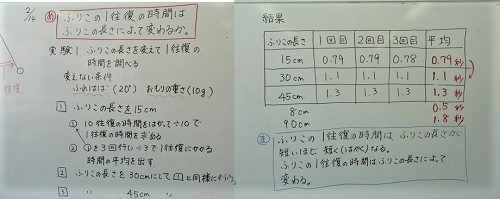 2/14
問 ふりこの1往復の時間は
ふりこの長さによって変わるか。
実験1 ふりこの長さを変えて1往復の
時間を調べる
変えない条件
ふれはば(20°) おもりの重さ(10g)
1 ふりこの長さを15cm
① 10往復の時間をはかって÷10で
1往復の時間を求める
② ①を3回行い÷3で1往復にかかる
時間の平均を出す
2 ふりこの長さを30cmにして1と同様に行う。
3 〃 45cm 〃
往復
結果
ふりこの長さ 1回目 2回目 3回目 平均
15cm 0.79 0.79 0.78 0.79秒
30cm 1.1 1.1 1.1 1.1秒
45cm 1.3 1.3 1.3 1.3秒
8cm 0.5秒
90cm 1.8秒
ふりこの1往復の時間は ふりこの長さが
短いほど 短く(はやく)なる。
ふりこの1往復の時間はふりこの長さによって
変わる。